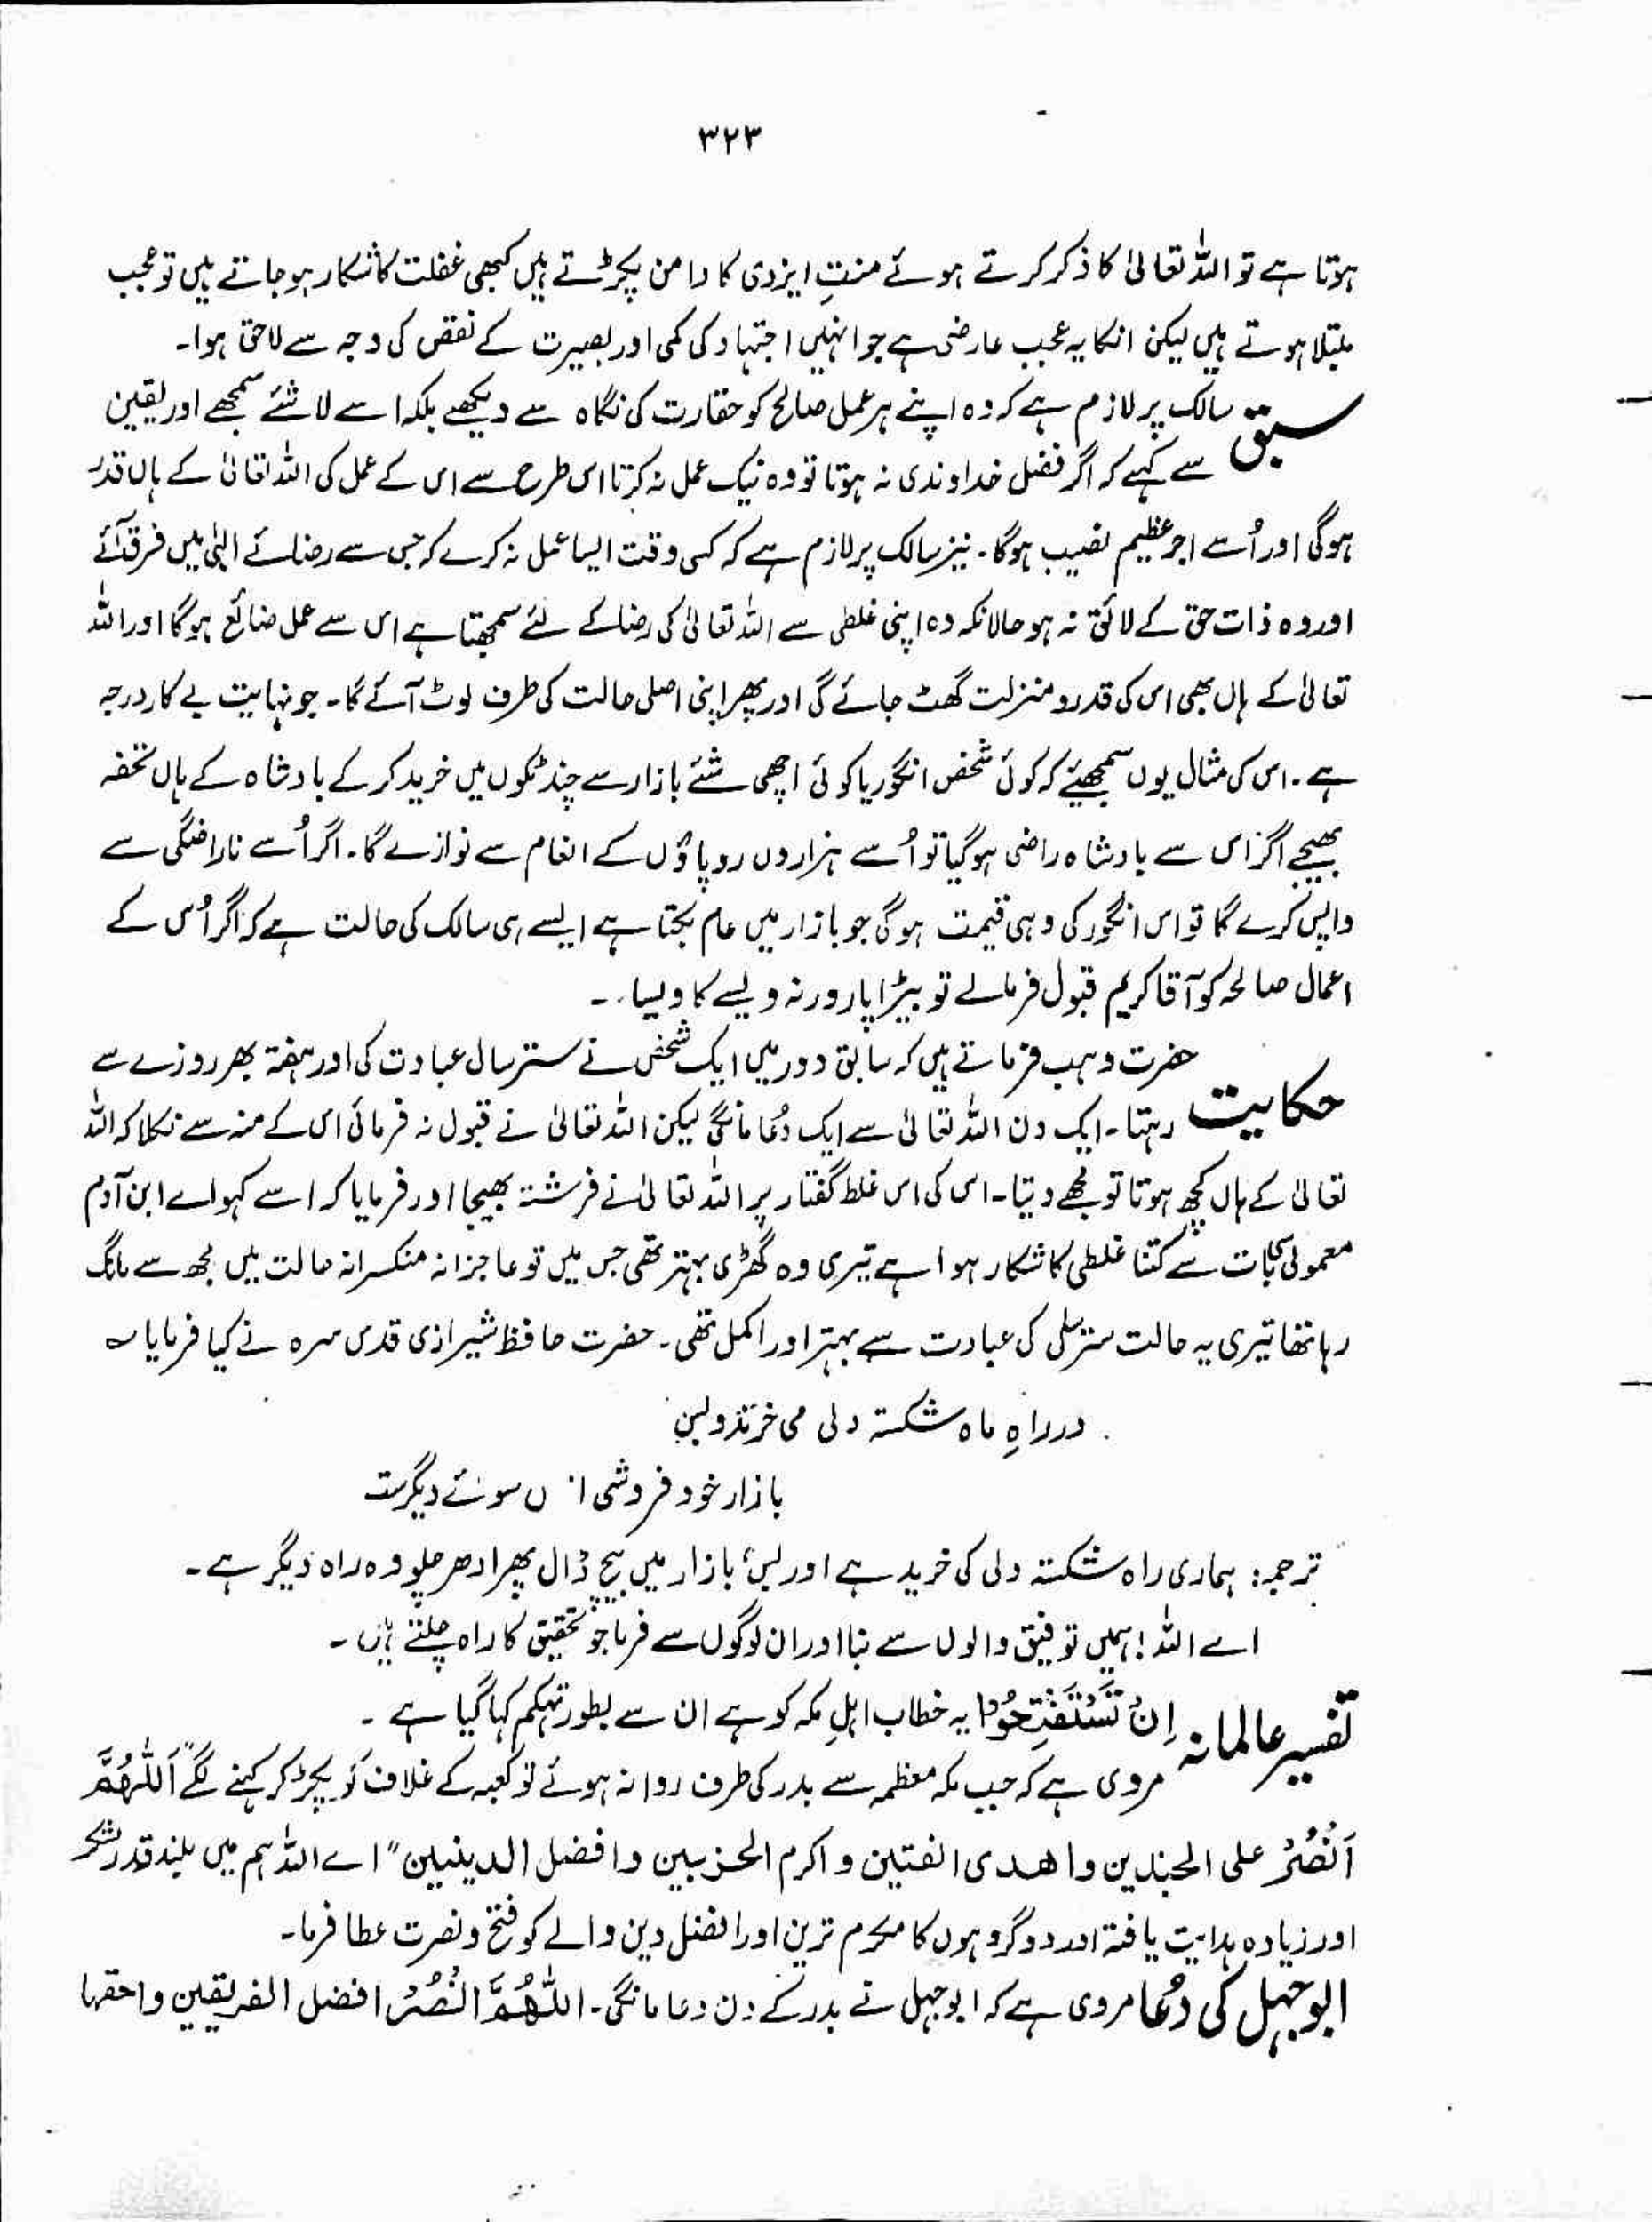 ۳۲۳
ہوتا ہے تو اللہ تعالیٰ کا ذکر کرتے ہوئے منتِ ایزدی کا دامن پکڑتے ہیں کبھی غفلت کا شکار ہو جاتے ہیں تو عجب
مبتلا ہوتے ہیں لیکن انکا یہ عجب عارضی ہے جو انہیں اجتہاد کی کمی اور بصیرت کے نقص کی وجہ سے لاحق ہوا۔
سبق سالک پر لازم ہے کہ وہ اپنے ہر عمل صالح کو حقارت کی نگاہ سے دیکھے بلکہ اسے لاشئے سمجھے اور یقین
سے کہے کہ اگر فضل خداوندی نہ ہوتا تو وہ نیک عمل نہ کرتا اس طرح سے اس کے عمل کی اللہ تعالیٰ کے ہاں قدر
ہوگی اور اُسے اجر عظیم نصیب ہوگا۔ نیز سالک پر لازم ہے کہ کسی وقت ایسا عمل نہ کرے کہ جس سے رضائے الہٰی میں فرق آئے
اور وہ ذات حق کے لائق نہ ہو حالانکہ وہ اپنی غلطی سے اللہ تعالیٰ کی رضا کے لئے سمجھتا ہے اس سے عمل ضائع ہوگا اور اللہ
تعالیٰ کے ہاں بھی اس کی قدر و منزلت گھٹ جائے گی اور پھر اپنی اصلی حالت کی طرف لوٹ آئے گا۔ جو نہایت بے کار درجہ
ہے۔ اس کی مثال یوں سمجھئے کہ کوئی شخص انگور یا کوئی اچھی شئے بازار سے چند ٹکوں میں خرید کر کے بادشاہ کے ہاں تحفہ
بھیجے اگر اس سے بادشاہ راضی ہوگیا تو اُسے ہزاروں روپاؤں کے انعام سے نوازے گا۔ اگر اُسے ناراضگی سے
واپس کرے گا تو اس انگور کی وہی قیمت ہوگی جو بازار میں عام بکتا ہے ایسے ہی سالک کی حالت ہے کہ اگر اُس کے
اعمال صالحہ کو آقا کریم قبول فرمالے تو بیڑا پار ورنہ ویسے کا ویسا۔
حکایت حضرت وہب فرماتے ہیں کہ سابق دور میں ایک شخص نے ستر سال عبادت کی اور ہفتہ بھر روزے سے
رہتا۔ ایک دن اللہ تعالیٰ سے ایک دُعا مانگی لیکن اللہ تعالیٰ نے قبول نہ فرمائی اس کے منہ سے نکلا کہ اللہ
تعالیٰ کے ہاں کچھ ہوتا تو مجھے دیتا۔ اس کی اس غلط گفتار پر اللہ تعالیٰ نے فرشتہ بھیجا اور فرمایا کہ اسے کہو اے ابن آدم
معمولی بات سے کتنا غلطی کا شکار ہوا ہے تیری وہ گھڑی بہتر تھی جس میں تو عاجزانہ منکسرانہ حالت میں مجھ سے مانگ
رہا تھا تیری یہ حالت ستر سال کی عبادت سے بہتر اور اکمل تھی۔ حضرت حافظ شیرازی قدس سرہ نے کیا فرمایا ؎
در راہِ ماہ شکستہ دلی می خرند و لبن
بازار خود فروشی ا ں سوئے دیگرست
ترجمہ: ہماری راہ شکستہ دلی کی خرید ہے اور بس بازار میں بیچ ڈال پھر ادھر چلو وہ راہ دیگر ہے۔
اے اللہ! ہمیں توفیق والوں سے بنا اور ان لوگوں سے فرما جو تحقیق کا راہ چلتے ہیں۔
تفسیر عالمانہ اِنْ تَسْتَفْتِحُوْا یہ خطاب اہلِ مکہ کو ہے ان سے بطور تہکم کہا گیا ہے۔
مروی ہے کہ جب مکہ معظمہ سے بدر کی طرف روانہ ہوئے تو کعبہ کے غلاف کو پکڑ کر کہنے لگے "اَللّٰهُمَّ
اَنْصُرْ علی الجندین واھدی الفئتین و اکرم الحزبین وافضل الدینین" اے اللہ ہم میں بلند قدر لشکر
اور زیادہ ہدایت یافتہ اور دو گروہوں کا مکرم ترین اور افضل دین والے کو فتح و نصرت عطا فرما۔
ابوجہل کی دُعا مروی ہے کہ ابوجہل نے بدر کے دن دعا مانگی۔ اللّٰهُمَّ انْصُرْ افضل الفریقین واحقھا